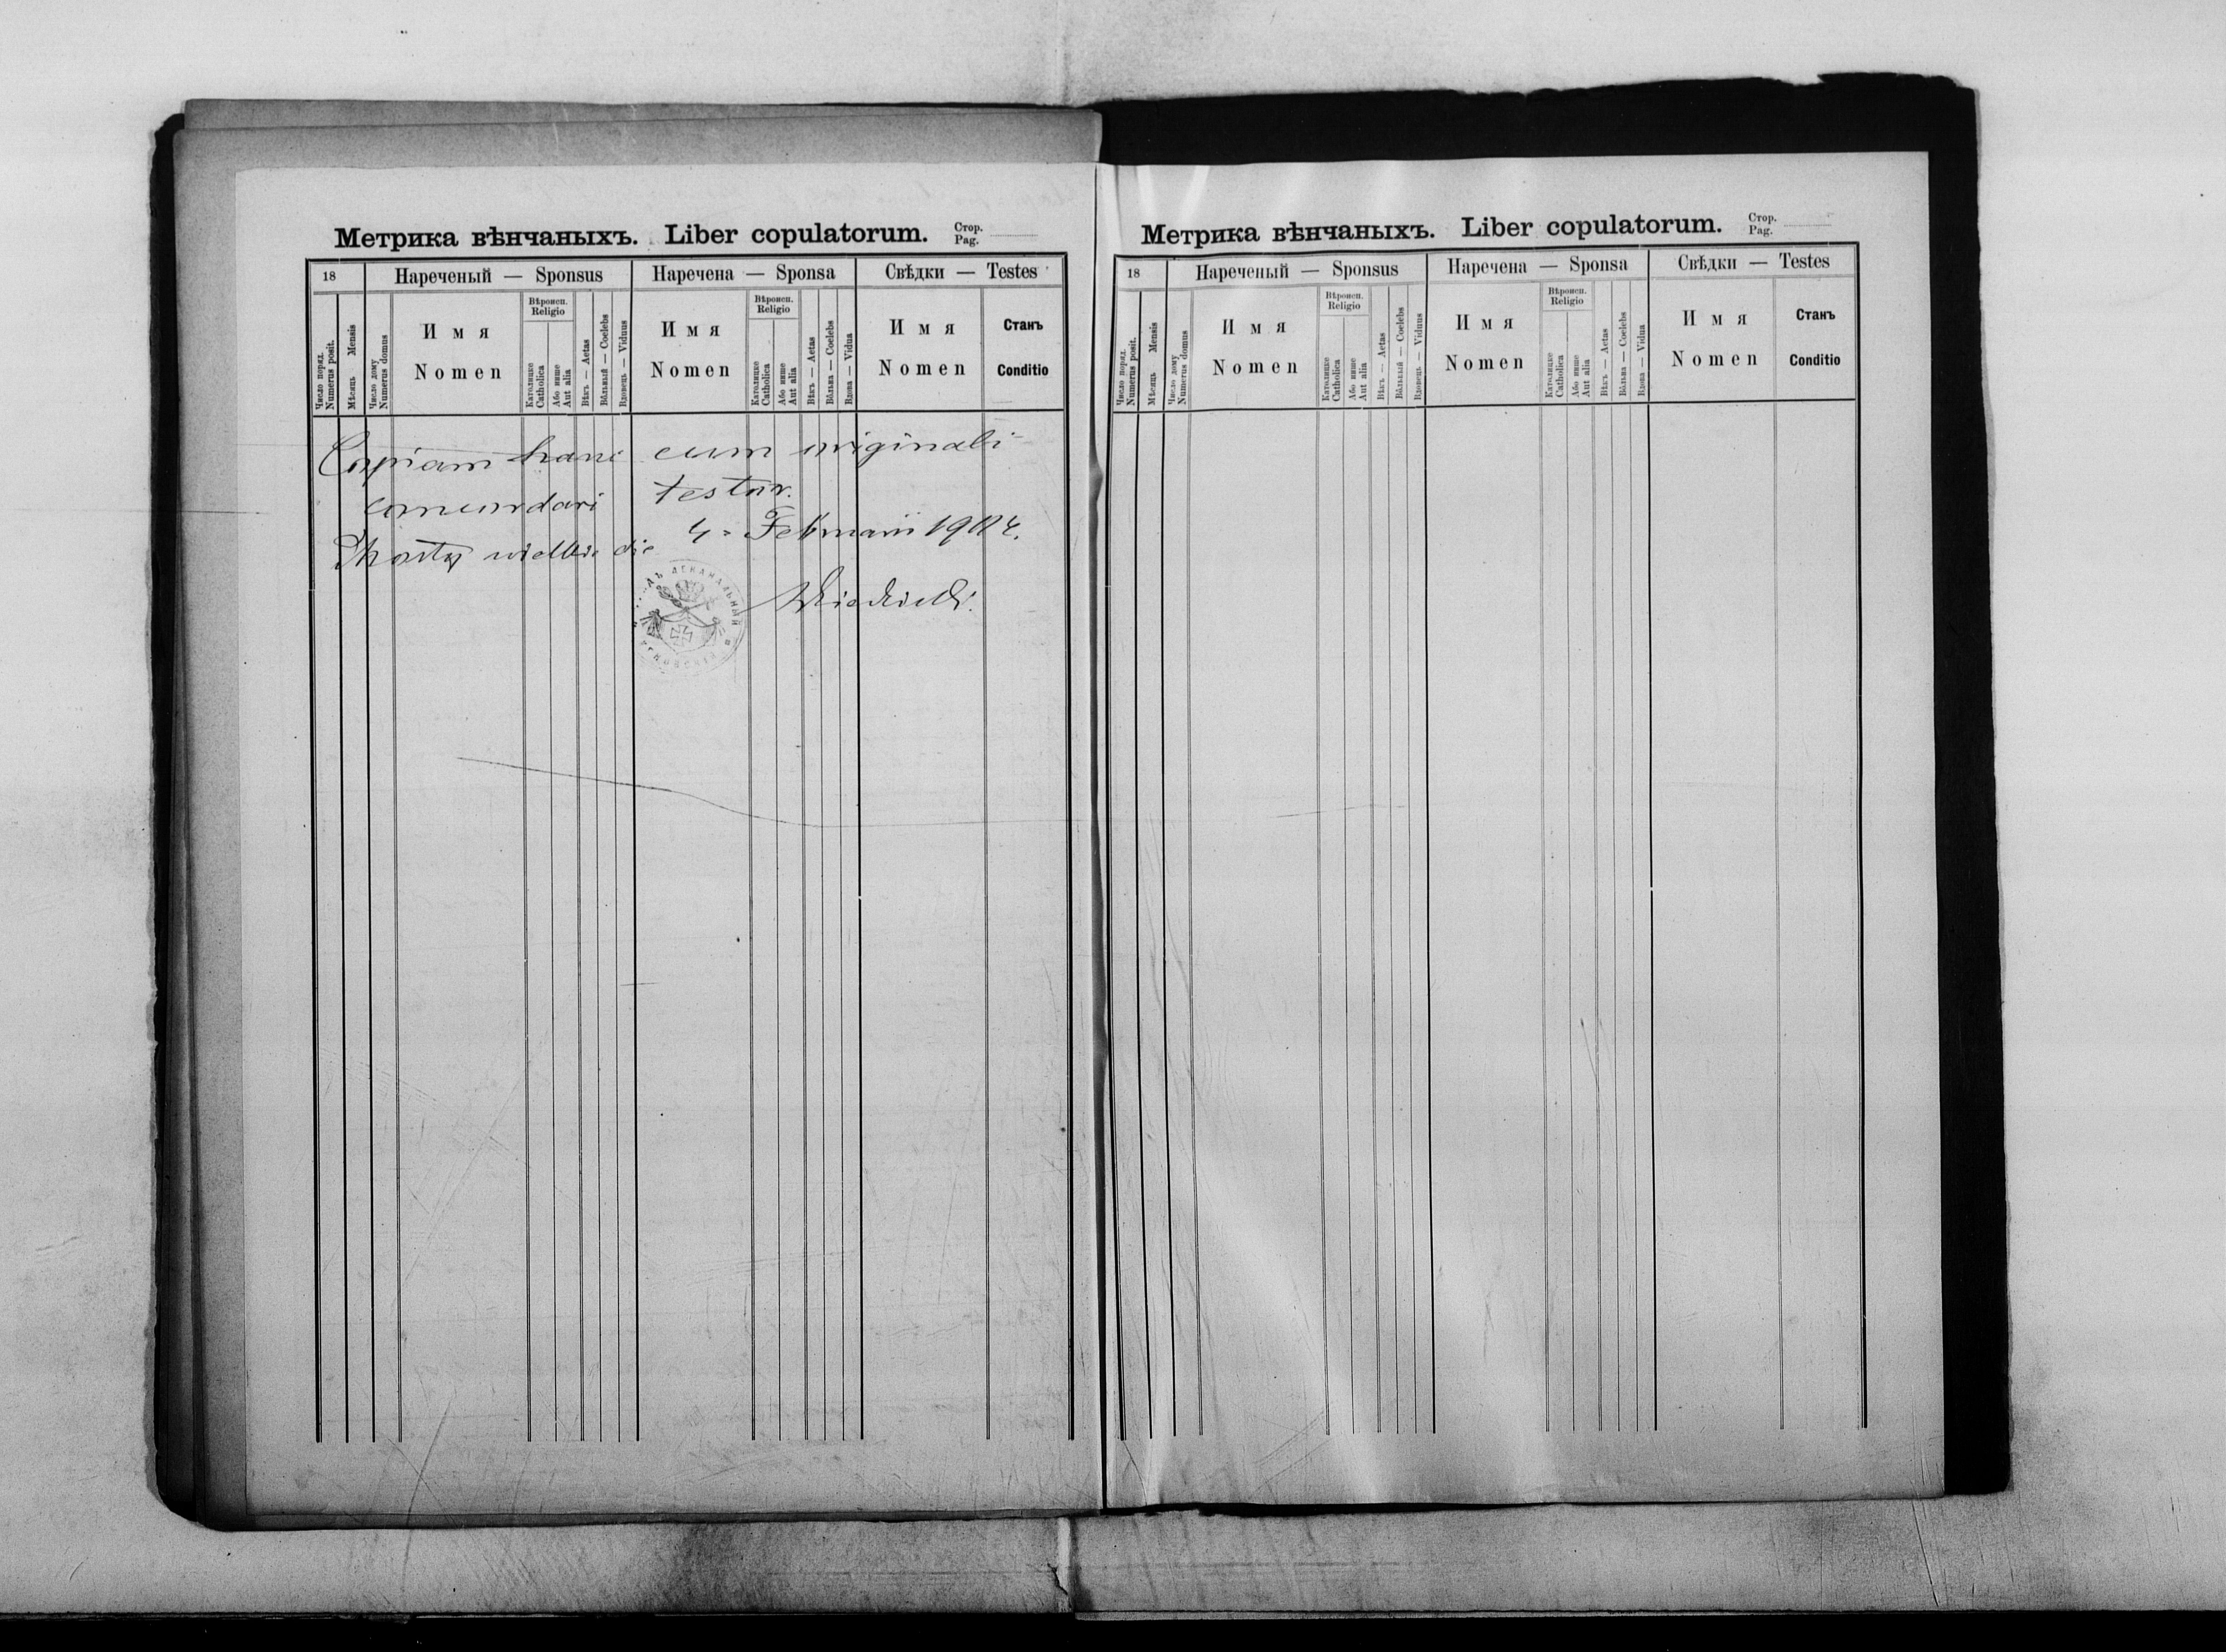 Метрика вѣнчаныхъ. Liber copulatorum. Стор.
Pag.
18 Нареченый — Sponsus Наречена — Sponsa Свѣдки — Testes
Число поряд. Numerus posit.
Мѣсяць Mensis
Число дому Numerus domus
И м я
Nomen
Вѣроисп.
Religio
Католицке Catholica
Або инше Aut alia
Вѣкъ — Aetas
Вôльный — Coelebs
Вдовець — Viduus
И м я
Nomen
Вѣроисп.
Religio
Католицке Catholica
Або инше Aut alia
Вѣкъ — Aetas
Вôльна — Coelebs
Вдова — Vidua
И м я
Nomen
Станъ
Conditio
Copiam hanc cum originali
concordari testor.
wielkie die 4 Februarii 1904.
Метрика вѣнчаныхъ. Liber copulatorum. Стор.
Pag.
18 Нареченый — Sponsus Наречена — Sponsa Свѣдки — Testes
Число поряд. Numerus posit.
Мѣсяць Mensis
Число дому Numerus domus
И м я
Nomen
Вѣроисп.
Religio
Католицке Catholica
Або инше Aut alia
Вѣкъ — Aetas
Вôльный — Coelebs
Вдовець — Viduus
И м я
Nomen
Вѣроисп.
Religio
Католицке Catholica
Або инше Aut alia
Вѣкъ — Aetas
Вôльна — Coelebs
Вдова — Vidua
И м я
Nomen
Станъ
Conditio